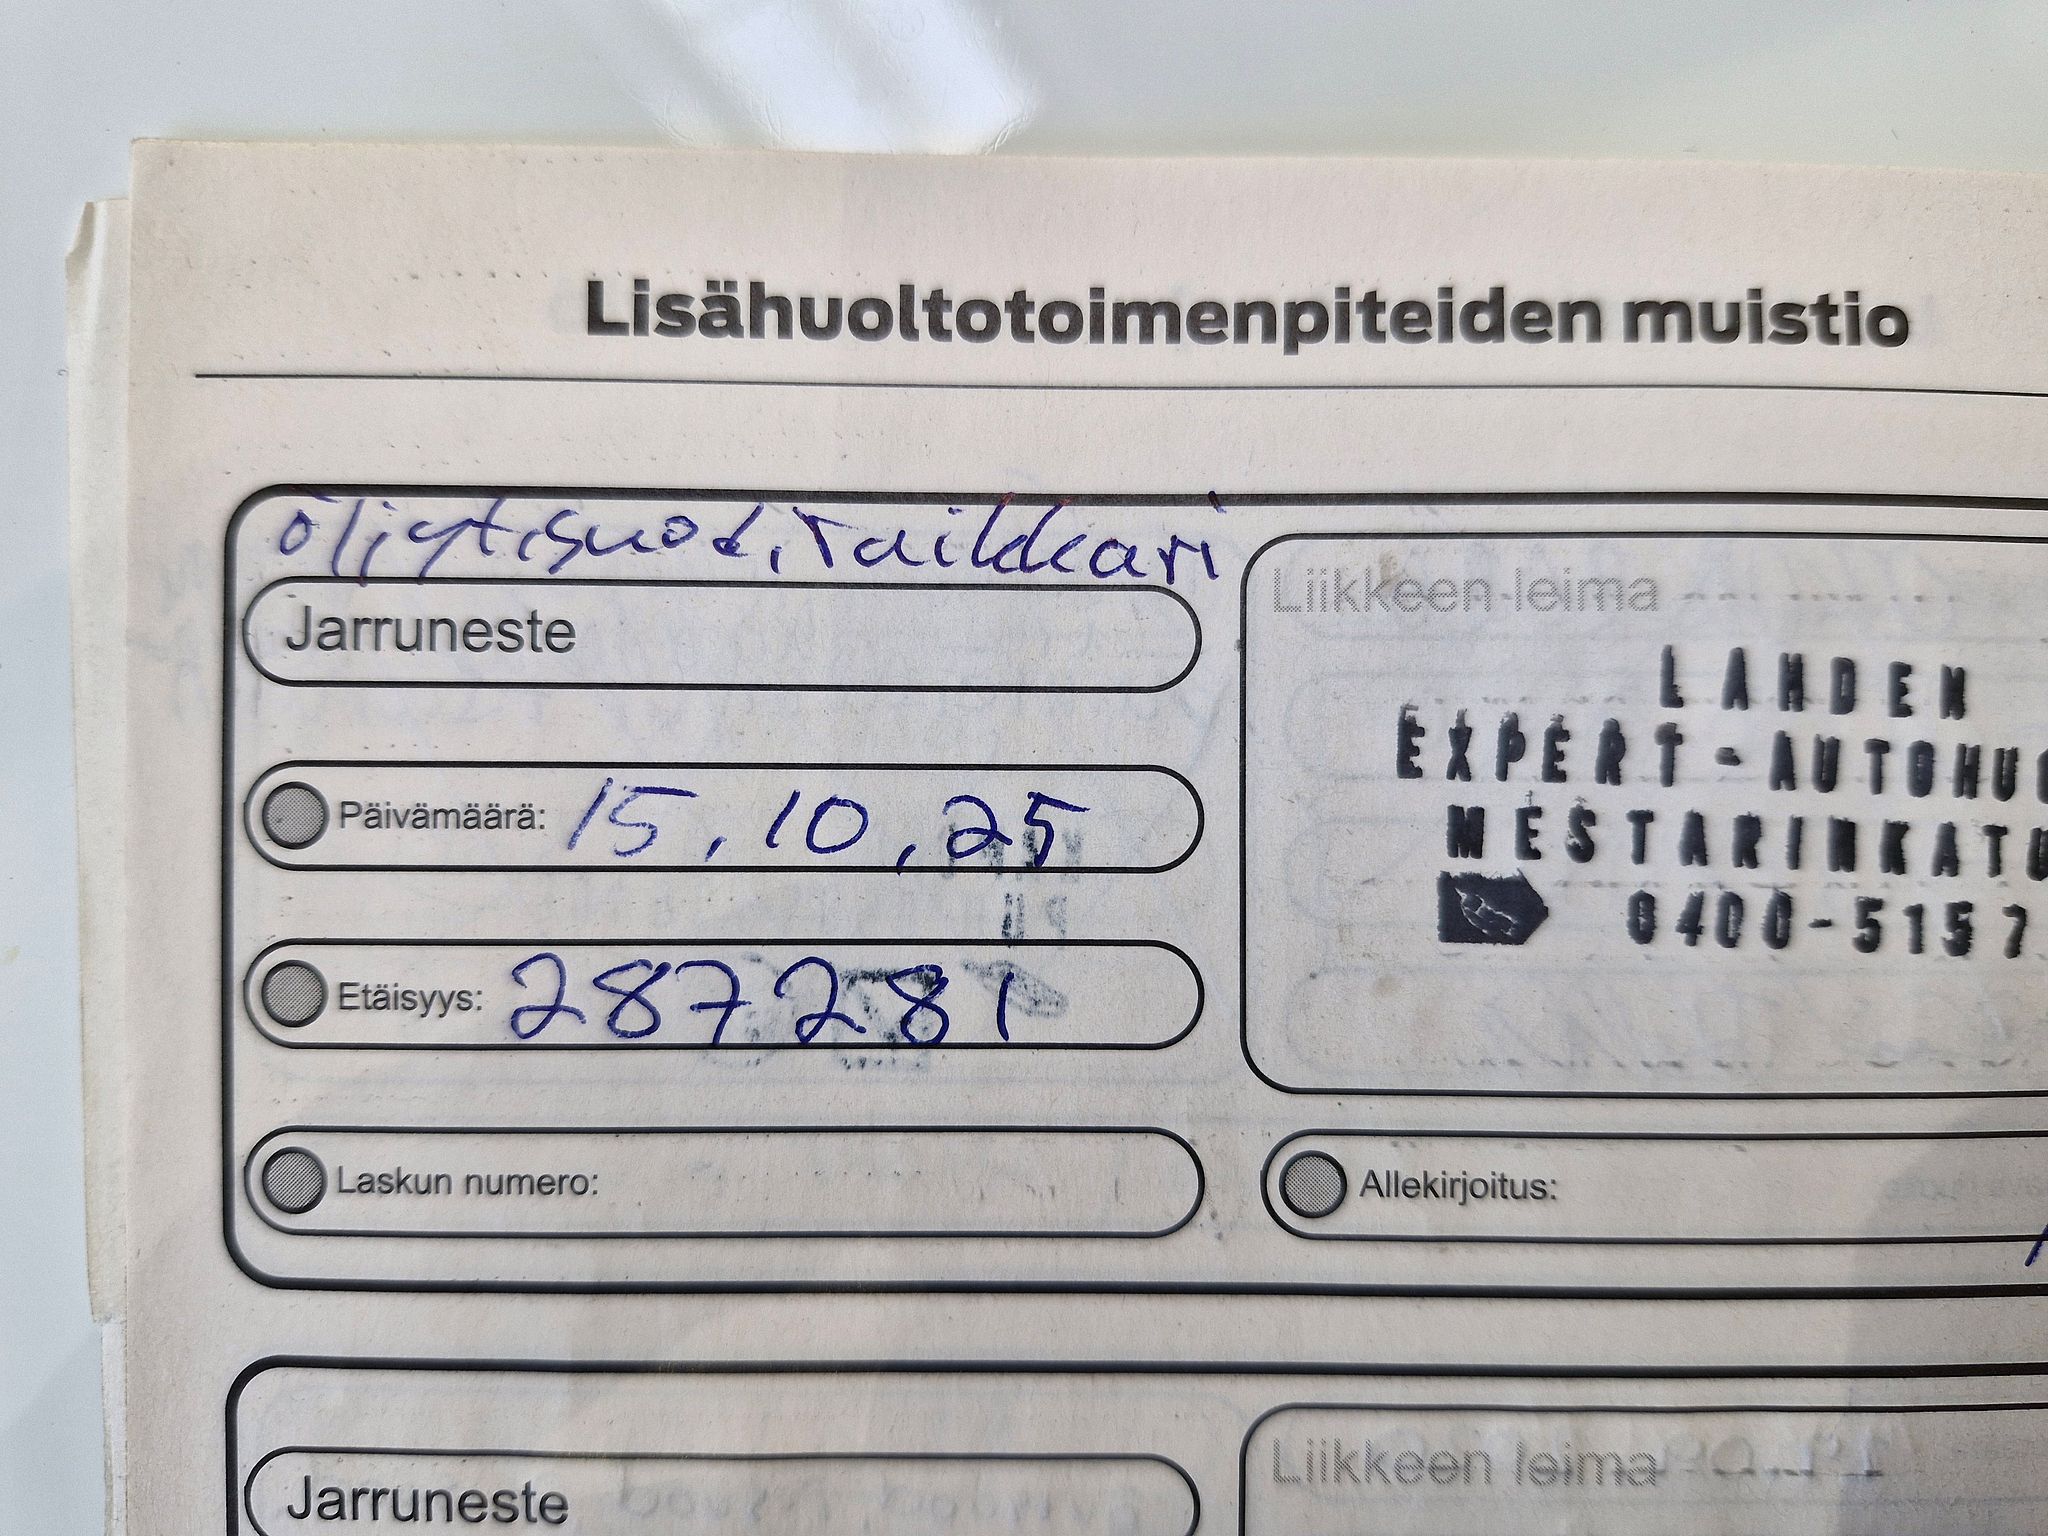 Lisähuoltotoimenpiteiden muistio
öljyt, suod, raikkari
Jarruneste
Päivämäärä: 15,10,25
Etäisyys: 287281
Laskun numero:
Liikkeen leima
LAHDEN
EXPERT-AUTOHUO
MESTARINKATU
0400-5157
Allekirjoitus:
Jarruneste
Liikkeen leima